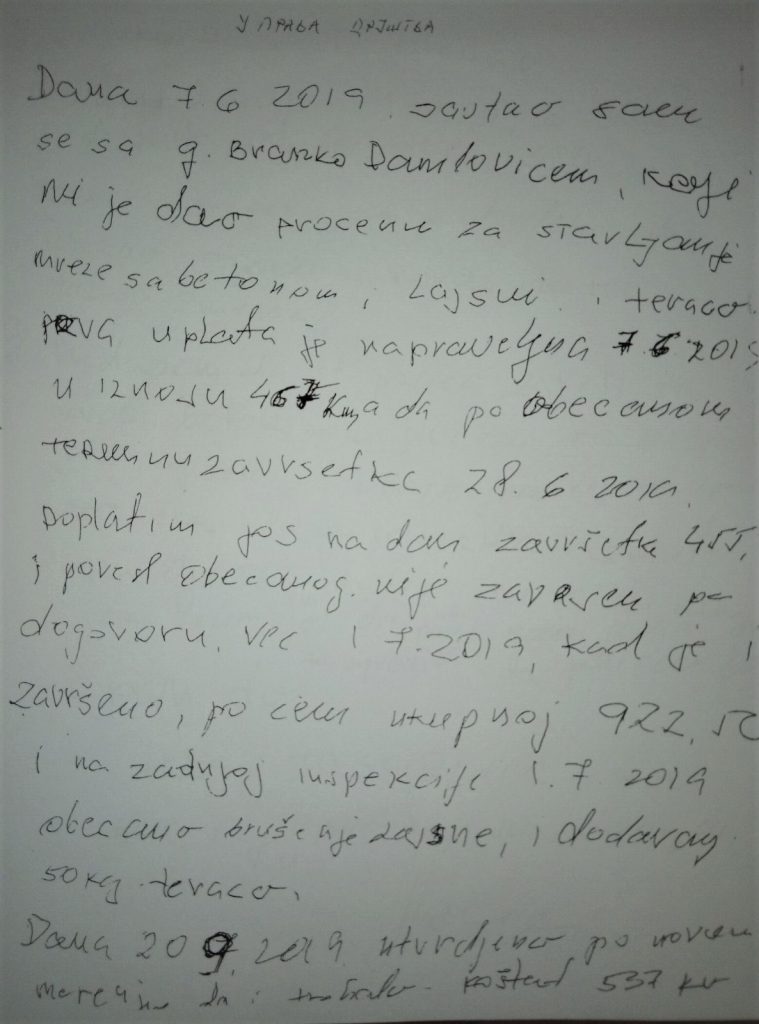 УПРАВА
Dana 7.6 2019. sastao sam
se sa g. Branko Damlovicem, koji
Mi je dao procenu za stavljanje
mreze sa betonom, Lajsni i teraco.
prva uplata je napravljena 7 6 2019
u iznosu 467 Km, a da po obecanom
terminu zavrsetka 28. 6 2019.
Doplatim jos na dan završetka 455,
i pored obecanog. nije zavrsen po
dogovoru, vec 1 7. 2019, kad je i
završeno, po cem ukupnoj 922,50
i na zadnjoj inspekcije 1. 7 2019
obecano brušenje Lajsne, i dodavanj
50 kg. teraco.
Dana 20 9. 2019. utvrdjeno po novom
da i koštad 537